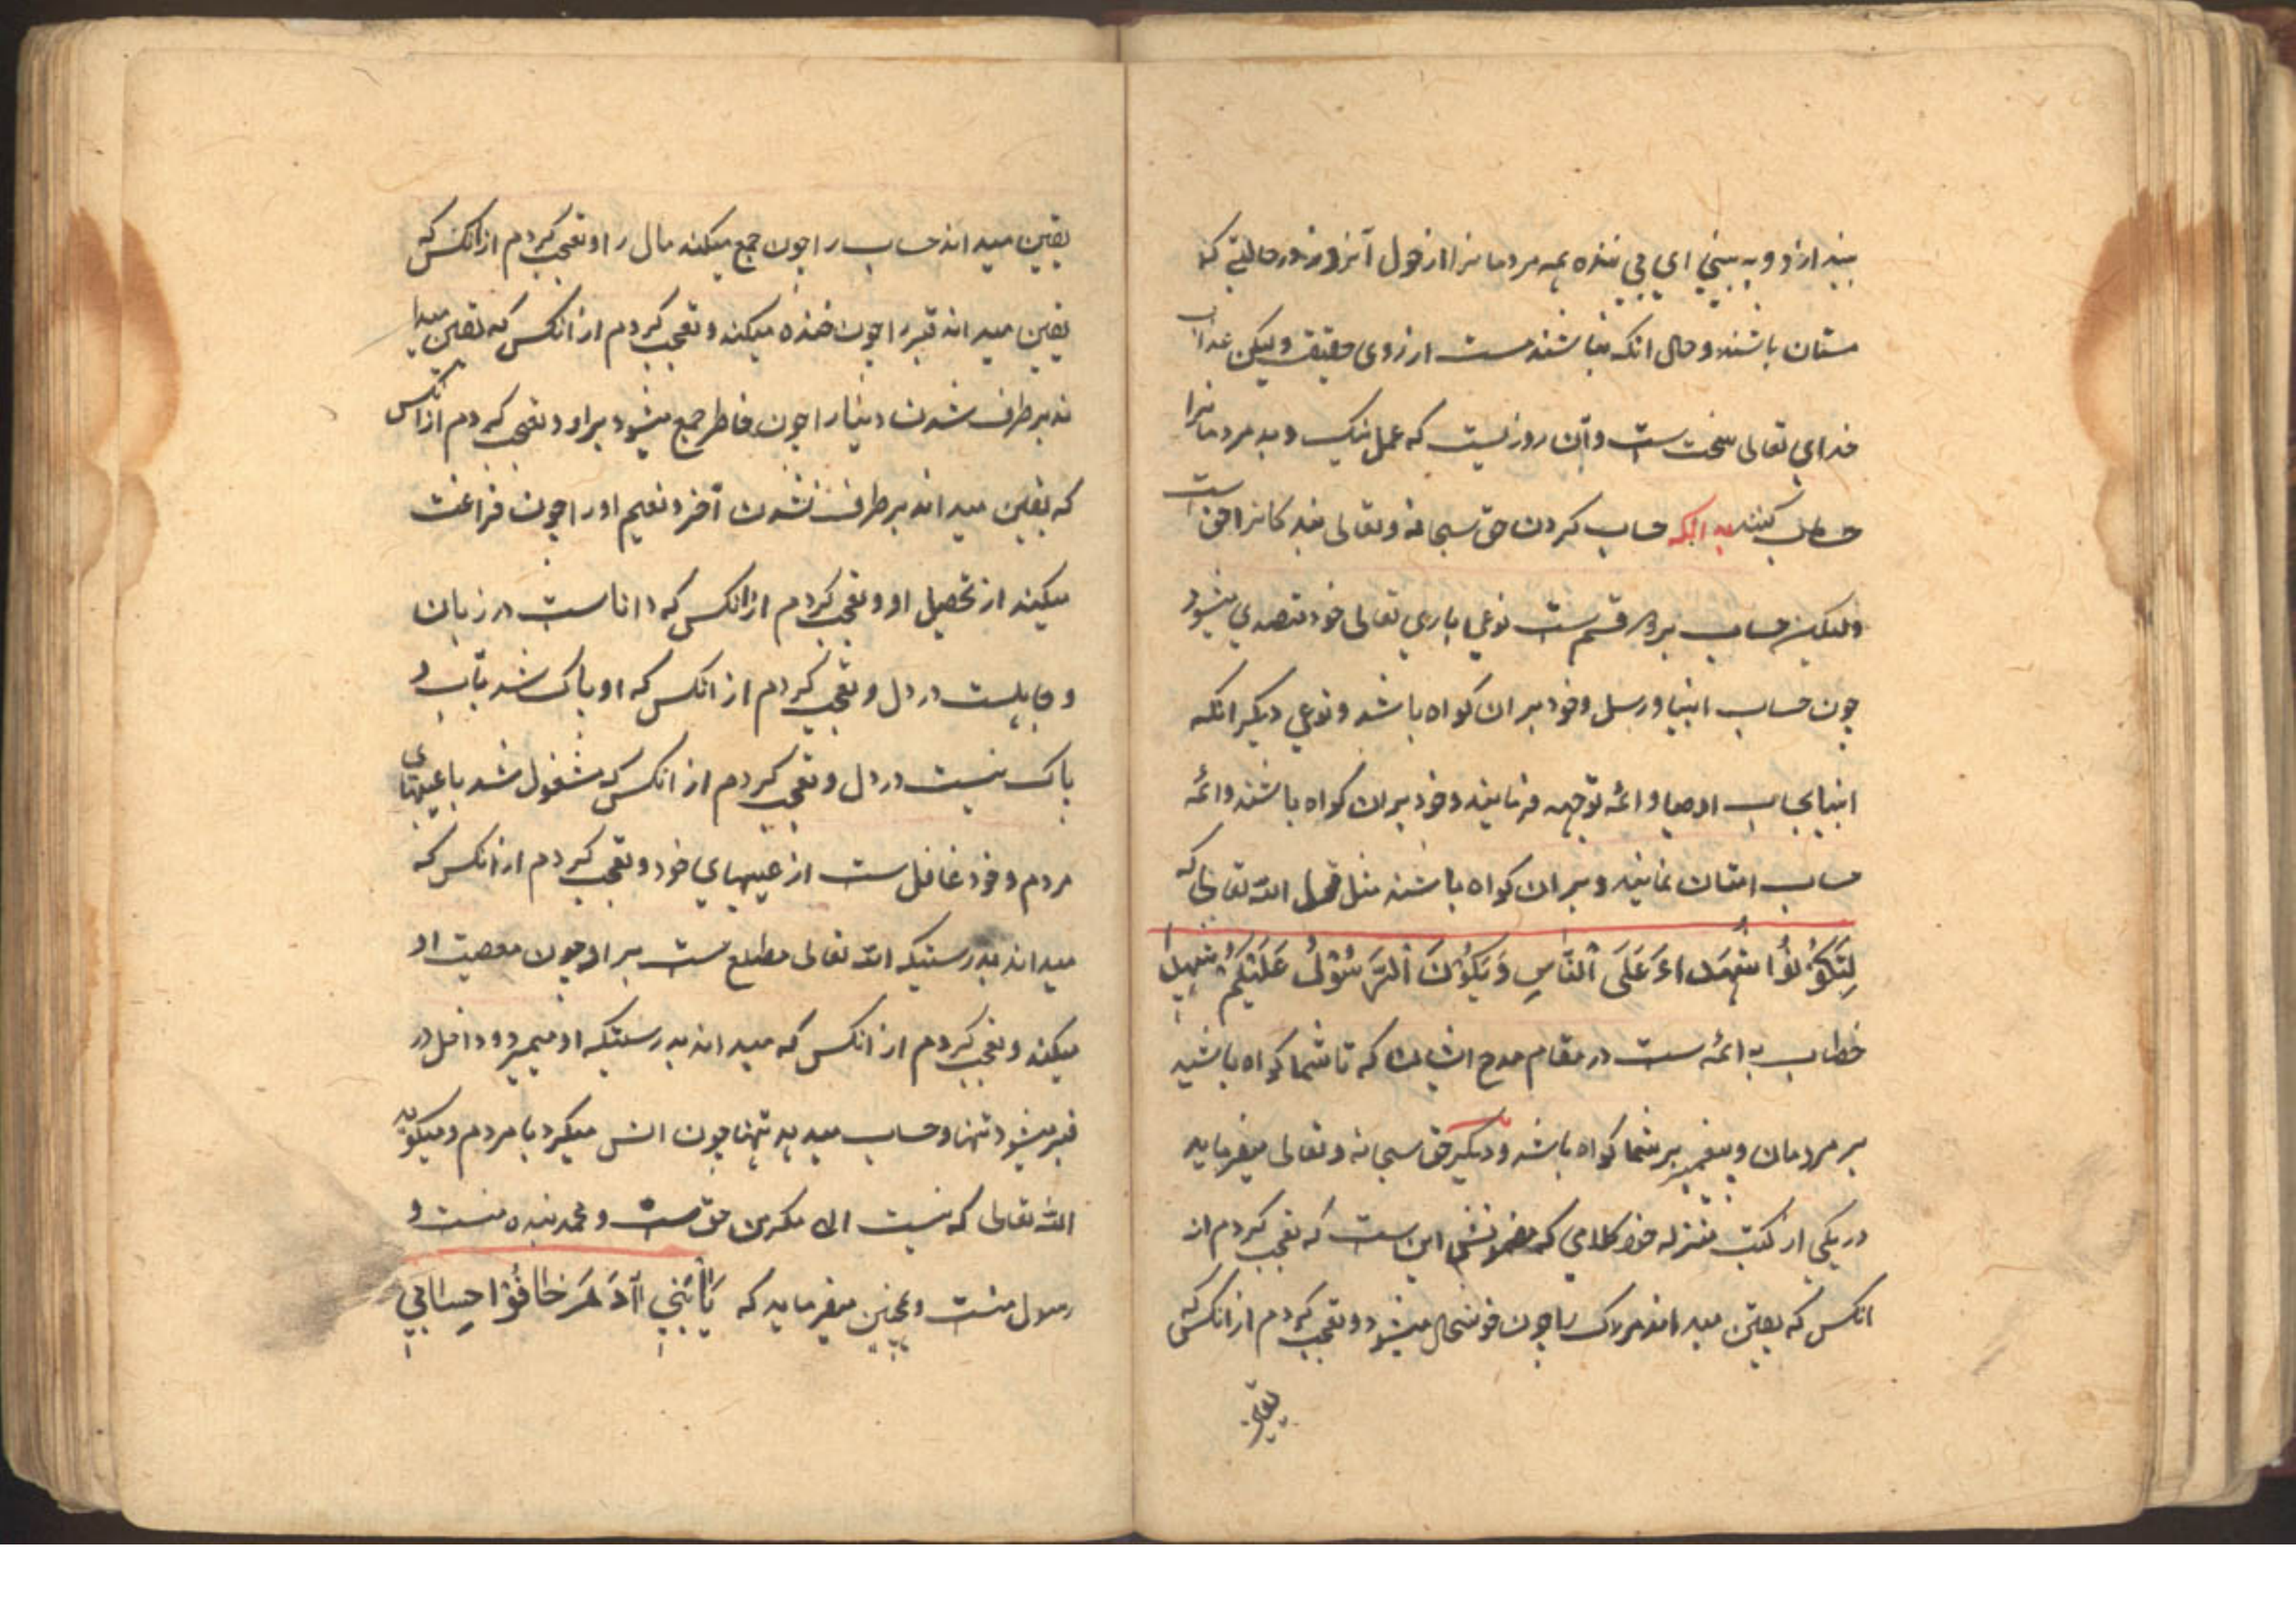 بیندازد و به بینی ای بی ننده همه مردمانرا از هول آنروز در حالتی که
مستان باشند و حال انکه نباشند مست از روی حقیقت و لیکن عذاب
خدای تعالی سخت ست و آن روزیست که عمل نیک و بد مردمانرا
حساب کنند بدانکه حساب کردن حق سبحانه و تعالی بندکانرا حق است
ولیکن حساب بر دو قسم ست نوعی باری تعالی خود متصدی میشود
چون حساب انبیا و رسل و خود بر ان کواه باشد و نوعی دیکر انکه
انبیا بحساب اوصیا و ائمه توجه فرمایند و خود بران کواه باشند و ائمه
حساب امتان نمایند و بر ان کواه باشند مثل قول الله تعالی که
لِتَكُونُوا شُهَدَاءَ عَلَى النَّاسِ وَيَكُونَ الرَّسُولُ عَلَيْكُمْ شَهِيدًا
خطاب به ائمه ست در مقام مدح ایشان که تا شما کواه باشید
بر مردمان و پیغمبر بر شما کواه باشد و دیکر حق سبحانه و تعالی میفرماید
در یکی از کتب منزله خود کلامی که مضمونش این ست که تعجب کردم از
انکس که یقین میداند مرک را چون خوشحال میشود و تعجب کردم از انکس که
یقین
یقین میداند حساب را چون جمع میکند مال را و تعجب کردم از انکس که
یقین میداند قبر را چون خنده میکند و تعجب کردم از انکس که یقین میدا
ند بر طرف شدن دنیا را چون خاطر جمع میشود براو و تعجب کردم از انکس
که یقین میداند بر طرف نشدن آخرة و نعیم اورا چون فراغت
میکند از تحصیل او و تعجب کردم از انکس که داناست در زبان
و جاهلست در دل و تعجب کردم از انکس که او پاک شد بآب و
پاک نیست در دل و تعجب کردم از انکس که مشغول شد با عیبهای
مردم و خود غافل ست از عیبهای خود و تعجب کردم از انکس که
میداند بدرستیکه الله تعالی مطلع ست بر او چون معصیت او
میکند و تعجب کردم از انکس که میداند بدرستیکه او میمیرد و داخل در
قبر میشود تنها و حساب میدهد تنها چون انس میکرد با مردم و میکوید
الله تعالی که نیست الا مکر من حق ست و محمد بنده منست و
رسول منست و همچنین میفرماید که یَا بَنِي آدَمَ خَافُوا حِسَابِي